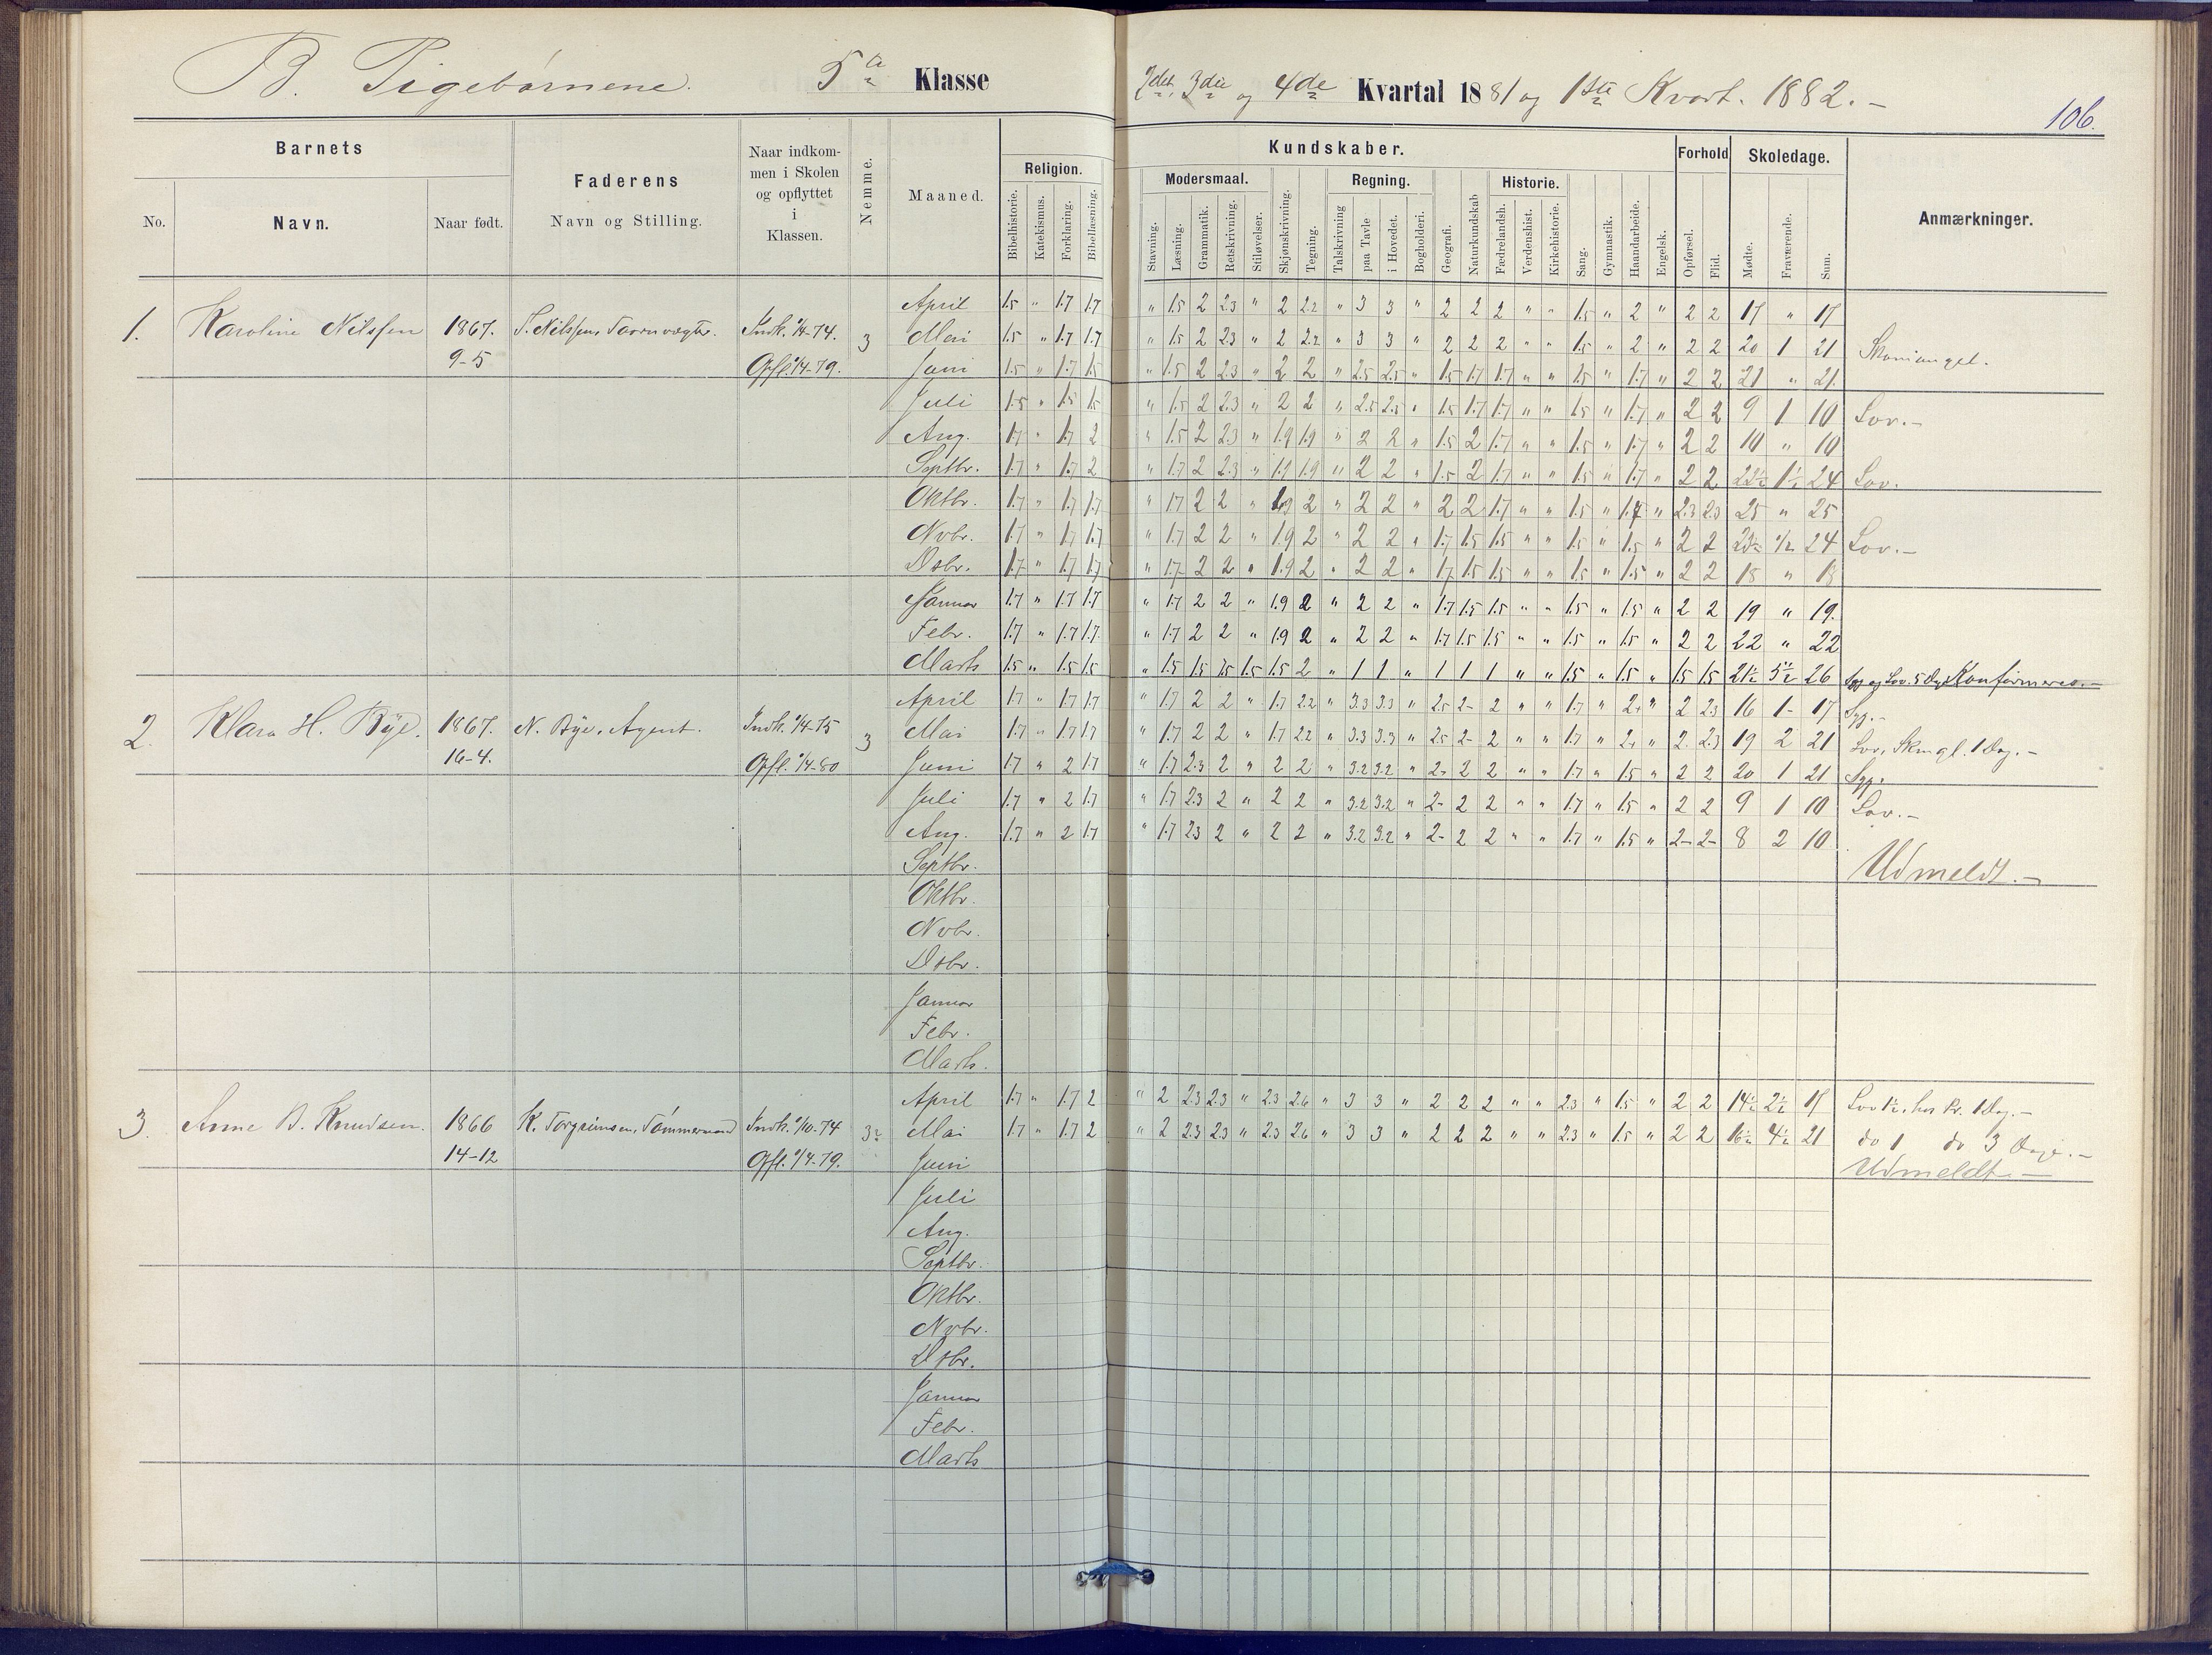 B. Pigebørnene. 5 a Klasse 2det, 3die og 4de Kvartal 1881 og 1ste Kvart. 1882. –
106.
Barnets
No.
Navn.
Naar født.
Faderens
Navn og Stilling.
Naar indkom-
men i Skolen
og opflyttet
i
Klassen.
Nemme.
Maaned.
Religion.
Bibelhistorie.
Katekismus.
Forklaring.
Bibellæsning.
Kundskaber.
Modersmaal.
Stavning.
Læsning.
Grammatik.
Retskrivning.
Stiløvelser.
Skjønskrivning.
Tegning.
Regning.
Talskrivning
paa Tavle
i Hovedet.
Bogholderi.
Geografi.
Naturkundskab
Historie.
Fædrelandsh.
Verdenshist.
Kirkehistorie.
Sang.
Gymnastik.
Haandarbeide.
Engelsk.
Forhold
Opførsel.
Flid.
Skoledage.
Mødte.
Fraværende.
Sum.
Anmærkninger.
1. Karoline Nilssen 1867. S. Nilssen, Taarnvægter. Indk. 1/4-74. 3
9-5 Opfl. 1/4-79.
April 1.5 " 1.7 1.7 " 1.5 2 2.3 " 2 2.2 " 3 3 " 2 2 2 " " 1.5 " 2 " 2 2 17 " 17
Mai 1.5 " 1.7 1.7 " 1.5 2 2.3 " 2 2.2 " 3 3 " 2 2 2 " " 1.5 " 2 " 2 2 20 1 21 Skomangel.
Juni 1.5 " 1.7 1.5 " 1.5 2 2.3 " 2 2 " 2.5 2.5 " 1.5 1.7 1.7 " " 1.5 " 1.7 " 2 2 21 " 21
Juli 1.5 " 1.5 1.5 " 1.5 2 2.3 " 2 2 " 2.5 2.5 " 1.5 1.7 1.7 " " 1.5 " 1.7 " 2 2 9 1 10 Lov. –
Aug. 1.7 " 1.7 2 " 1.5 2 2.3 " 1.9 1.9 " 2 2 " 1.5 2 1.7 " " 1.5 " 1.7 " 2 2 10 " 10
Septbr. 1.7 " 1.7 2 " 1.7 2 2.3 " 1.9 1.9 " 2 2 " 1.5 2 1.7 " " 1.5 " 1.7 " 2 2 22½ 1½ 24 Lov.
Oktbr. 1.7 " 1.7 1.7 " 1.7 2 2 " 1.9 2 " 2 2 " 2 2 1.7 " " 1.5 " 1.7 " 2.3 2.3 25 " 25
Nvbr. 1.7 " 1.7 1.7 " 1.7 2 2 " 1.9 2 " 2 2 " 1.7 1.5 1.5 " " 1.5 " 1.5 " 2 2 23½ 1/2 24 Lov. –
Dsbr. 1.7 " 1.7 1.7 " 1.7 2 2 " 1.9 2 " 2 2 " 1.7 1.5 1.5 " " 1.5 " 1.5 " 2 2 18 " 18
Januar 1.7 " 1.7 1.7 " 1.7 2 2 " 1.9 2 " 2 2 " 1.7 1.5 1.5 " " 1.5 " 1.5 " 2 2 19 " 19.
Febr. 1.7 " 1.7 1.7. " 1.7 2 2 " 1.9 2 " 2 2 " 1.7 1.5 1.5 " " 1.5 " 1.5 " 2 2 22 " 22
Marts 1.5 " 1.5 1.5 " 1.5 1.5 1.5 1.5 1.5 2 " 1 1 " 1 1 1 " " 1.5 " 1.5 " 1.5 1.5 21½ 5½ 26 Syg og Lov. 5 Dge Konfirmeres. –
2. Klara H. Bÿe. 1867. N. Bÿe, Agent. Indk. 1/4-75 3
16-4. Opfl. 1/4-80
April 1.7 " 1.7 1.7 " 1.7 2 2 " 1.7 2.2 " 3.3 3.3 " 2.5 2- 2 " " 1.7 " 2+ " 2 2.3 16 1- 17 Syg. –
Mai 1.7 " 1.7 1.7 " 1.7 2 2 " 1.7 2.2 " 3.3 3.3 " 2.5 2- 2 " " 1.7 " 2+ " 2. 2.3 19 2 21 Lov, Skmgl. 1 Dag. –
Juni 1.7 " 2 1.7 " 1.7 2.3 2 " 2 2 " 3.2 3.2 " 2- 2 2 " " 1.7 " 1.5 " 2 2 20 1 21 Syg.
Juli 1.7 " 2 1.7 " 1.7 2.3 2 " 2 2 " 3.2 3.2 " 2- 2 2 " " 1.7 " 1.5 " 2 2 9 1 10 Lov. –
Aug. 1.7 " 2 1.7 " 1.7 2.3 2 " 2 2 " 3.2 3.2 " 2- 2 2 " " 1.7 " 1.5 " 2- 2- 8 2 10
Septbr. Udmeldt. –
Oktbr.
Nvbr.
Dsbr.
Januar
Febr.
Marts.
3. Anne B. Knudsen. 1866 K. Torgrimsen, Tømmermand Indk. 1/10-74 3½
14-12 Opfl. 1/4-79.
April 1.7 " 1.7 2 " 2 2.3 2.3 " 2.3 2.6 " 3 3 " 2 2 2 " " 2.3 " 1.5 " 2 2 14½ 2½ 17 Lov 1½, hos Pr. 1 Dag. –
Mai 1.7 " 1.7 2 " 2 2.3 2.3 " 2.3 2.6 " 3 3 " 2 2 2 " " 2.3 " 1.5 " 2 2 16½ 4½ 21 do 1 do 3 Dage. –
Juni Udmeldt. –
Juli
Aug.
Septbr.
Oktbr.
Nvbr.
Dsbr.
Januar
Febr.
Marts